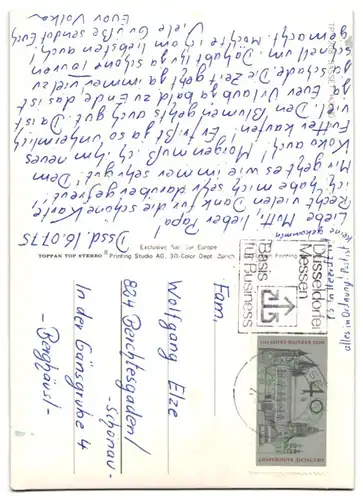 Dssd. 16.07.75
Liebe Mutti, lieber Papa!
Recht vielen Dank für die schöne Karte!
Ich habe mich sehr darüber gefreut.
Mir geht es wie immer sehr gut. Dem
Koko auch! Morgen muß ich ihm neues
Futter kaufen. Er frißt ja so unheimlich
viel. Den Blumen geht's auch gut. Da ist
Euer Urlaub ja bald zu Ende das ist
schade. Die Zeit geht ja immer viel zu
schnell um. Da habt Ihr ja schöne Touren
gemacht. Möchte am liebsten auch!
Viele Grüße sendet Euch
Euer Volker
alles in Ordnung
Exclusive Sale for Europe
TOPPAN TOP STEREO® Printing Studio AG, 3-Color Dept. Zürich
Düsseldorfer
Messen
Basis
für Business
40
DEUTSCHE BUNDESPOST
Fam.
Wolfgang Elze
824 Berchtesgaden/
-Schönau-
In der Gänsgrube 4
-Berghäusl-